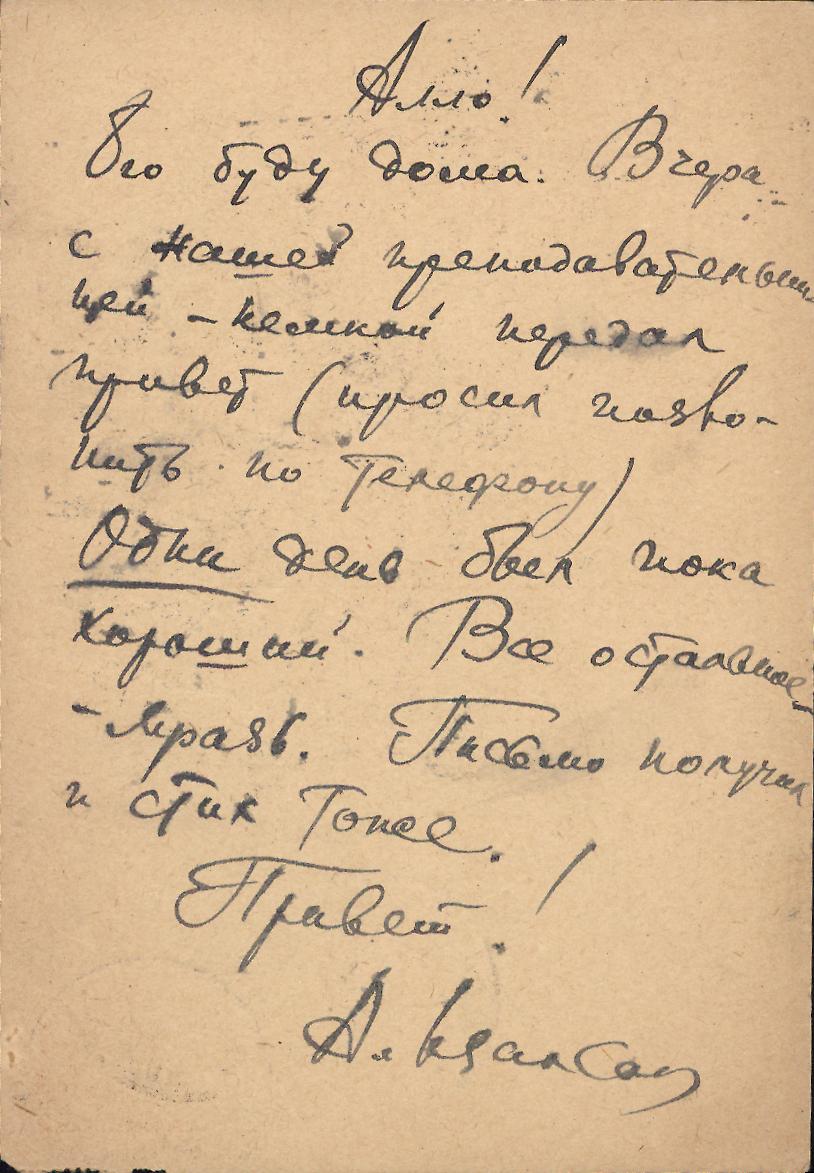 Алло!
8го буду дома. Вчера
с нашей преподавательни-
цей – немкой передал
привет (просил позво-
нить по телефону)
Один день был пока
хороший. Все остальное –
– мразь. Письмо получил
и стих тоже.
Привет!
А.